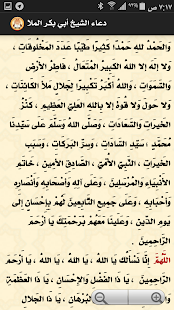 ٧:١٧ ص
دعاء الشيخ أبي بكر الملا
وَالحَمْدُ للهِ حَمْدًا كَثِيرًا طَيِّبًا عَدَدَ المَخْلُوقَاتِ ،
وَلا إِلهَ إِلا اللهُ ، اللهُ أَكْبَرُ تَكْبِيرًا لِجَلالِ مَلأَ الكَائِنَاتِ ،
وَلا حَوْلَ وَلا قُوَّةَ إِلا بِاللهِ العَلِيِّ العَظِيمِ ، كَنْزُ
الخَيْرَاتِ وَالسَّعَادَاتِ ، وَصَلَّى اللهُ عَلَى سَيِّدِنَا
مُحَمَّدٍ سَيِّدِ السَّادَاتِ ، وَسِرِّ البَرَكَاتِ ، وَسَبَبِ
الخَيْرَاتِ ، النَّبِيِّ الأُمِّيِّ ، الصَّادِقِ الأَمِينِ ، خَاتَمِ
الأَنْبِيَاءِ وَالمُرْسَلِينَ ، وَعَلَى آلِهِ وَأَصْحَابِهِ وَأَنْصَارِهِ
أَجْمَعِينَ ، وَعَلَى جَمِيعِ التَّابِعِينَ لَهُمْ بِإِحْسَانٍ إِلَى
يَوْمِ الدِّينِ ، وَعَلَيْنَا مَعَهُمْ بِرَحْمَتِكَ يَا أَرْحَمَ
الرَّاحِمِينَ
اللَّهُمَّ إِنَّا نَسْأَلُكَ يَا اللهُ ، يَا اللهُ ، يَا اللهُ ، يَا أَرْحَمَ
الرَّاحِمِينَ ، يَا ذَا الفَضْلِ وَالإِحْسَانِ ، يَا ذَا العَظَمَةِ
وَالسُّلْطَانِ ، يَا ذَا الجَلالِ